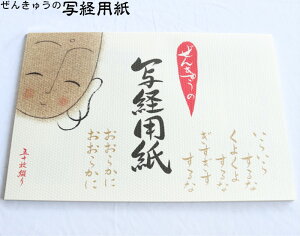 ぜんきゅうの写経用紙
ぜんきゅうの
写経用紙
いらいら
するな
くよくよ
するな
ぎすぎす
するな
おおらかに
おおらかに
五十枚綴り